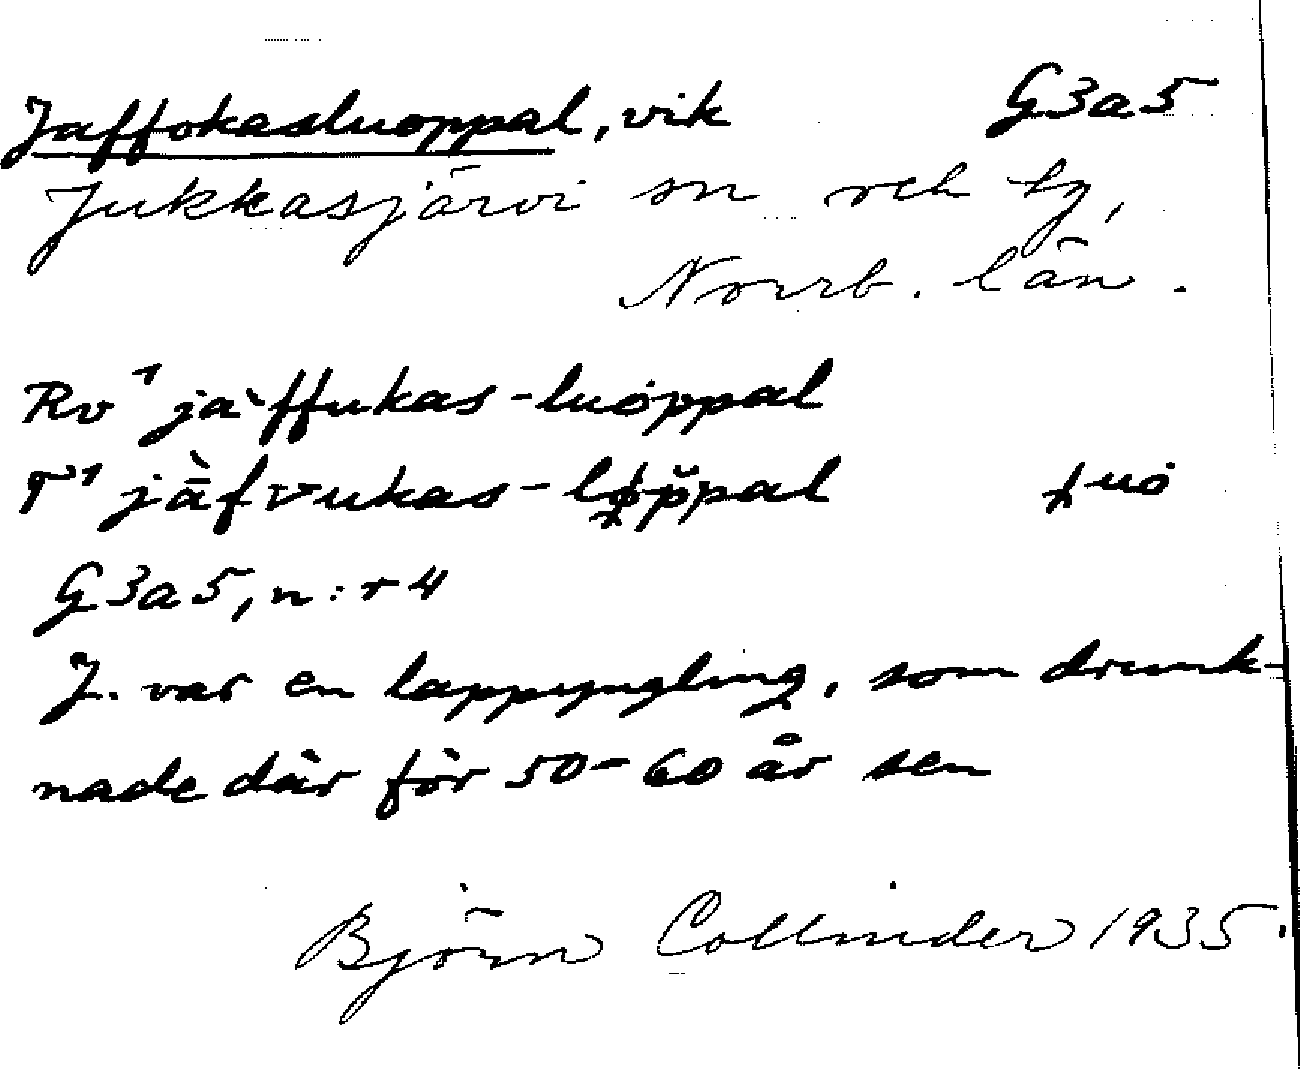 Jaffokasluoppal, vik G3a5
Jukkasjärvi sn och tg,
Norrb. län.
Rv¹ jàffukas-luòppal
T¹ jā̀fvukas-lp̌pal ⌊uȯ
G3a5, n:r 4
J. var en lappyngling, som drunk-
nade där för 50-60 år sen
Björn Collinder 1935.